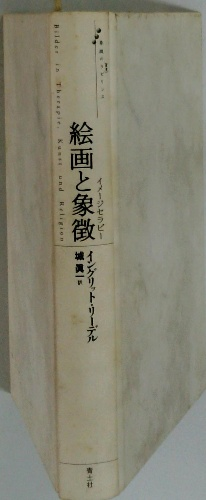 Bilder in Therapie, Kunst und Religion
絵画と象徴
イメージセラピー
イングリット・リーデル
城眞一 訳
青土社